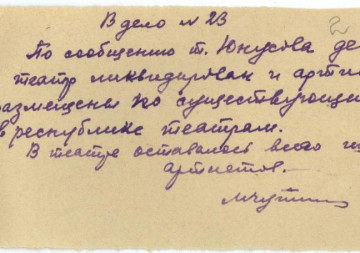 В дело № 23
2
По сообщению т. Юнусова де
театр ликвидирован и арти
размещены по существующи
в республике театрам.
В театре оставалось всего
артистов.